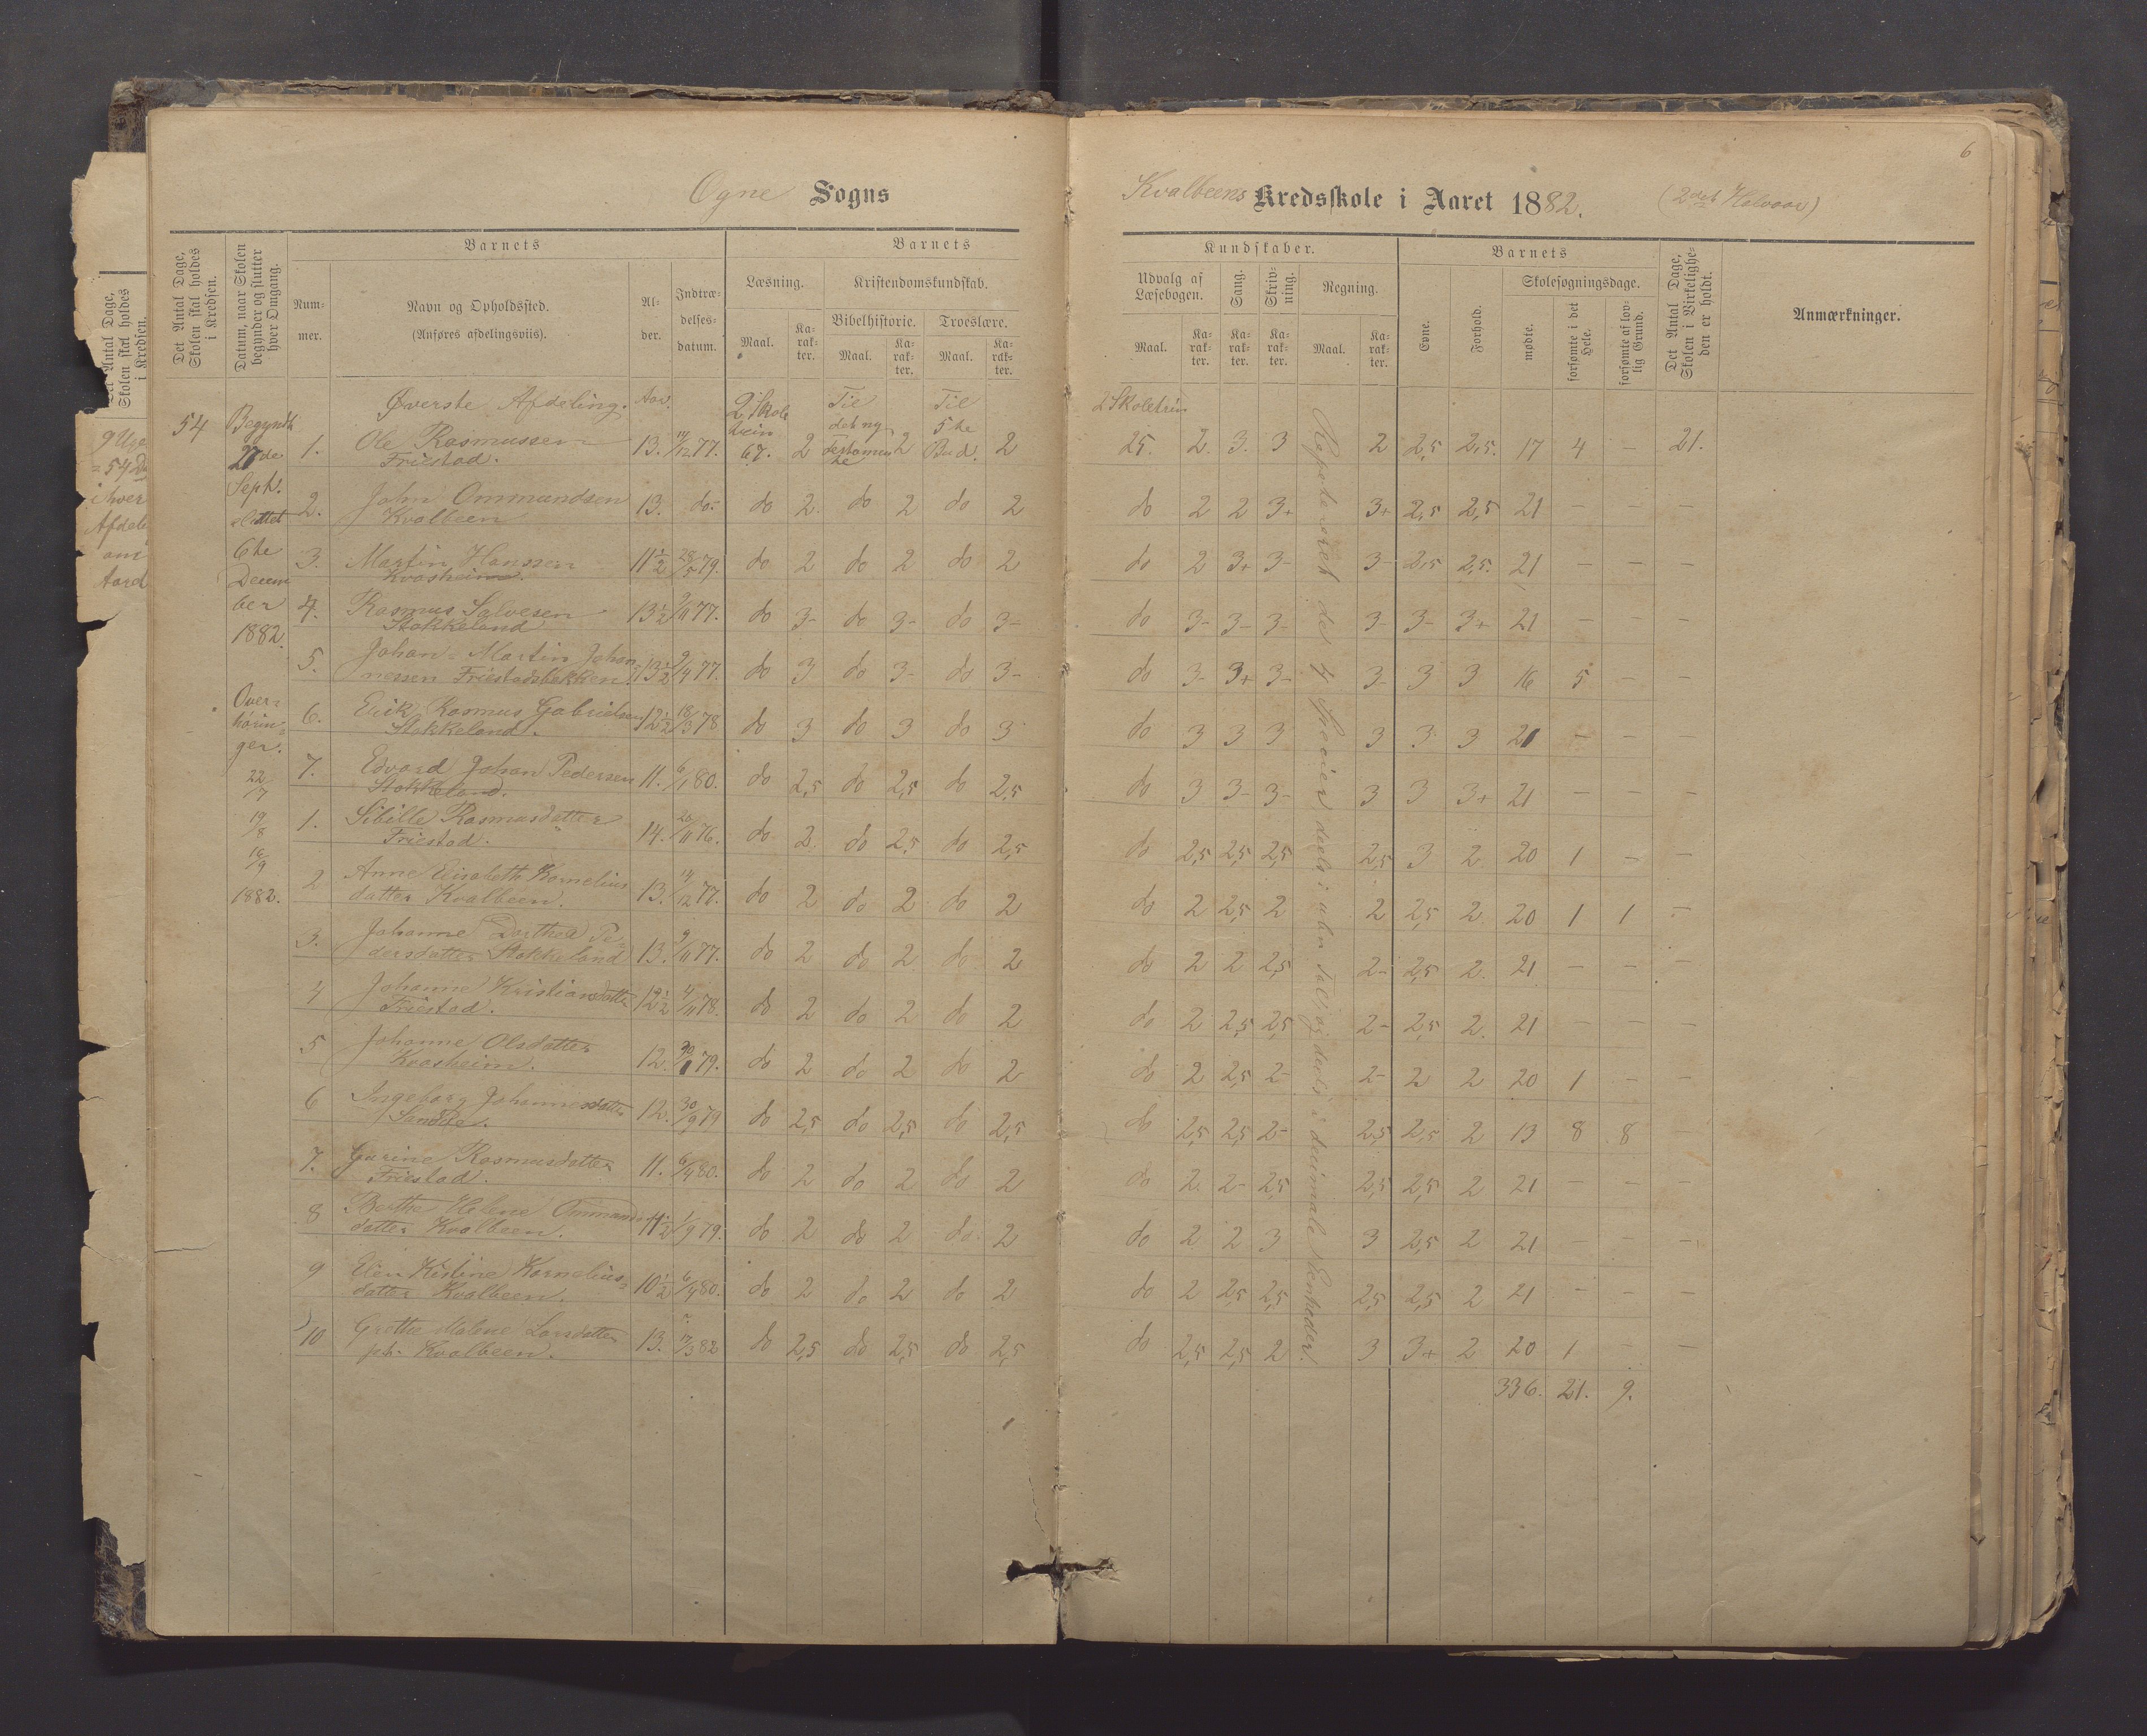 Ogne Sogns
Kvalbeens Kredsskole i Aaret 1882. (2det Halvaar)
6
Det Antal Dage, Skolen skal holdes i Kredsen.
Datum, naar Skolen begynder og slutter hver Omgang.
Barnets
Num-
mer.
Navn og Opholdssted.
(Anføres afdelingsviis).
Al-
der.
Indtræ-
delses-
datum.
Barnets
Læsning.
Kristendomskundskab.
Bibelhistorie.
Troeslære.
Maal.
Ka-
rak-
ter.
Maal.
Ka-
rak-
ter.
Maal.
Ka-
rak-
ter.
Kundskaber.
Udvalg af
Læsebogen.
Sang.
Skriv-
ning.
Regning.
Maal.
Ka-
rak-
ter.
Ka-
rak-
ter.
Ka-
rak-
ter.
Maal.
Ka-
rak-
ter.
Barnets
Evne.
Forhold.
Skolesøgningsdage.
mødte.
forsømte i det Hele.
forsømte af lov-
lig Grund.
Det Antal Dage, Skolen i Virkelighe-
den er holdt.
Anmærkninger.
54
Begyndt
27de
Sept.
sluttet
6te
Decem
ber
1882.
Over-
hørin-
ger.
22/7
19/8
16/9
1882.
Øverste Afdeling. Aar. 2 Skole Til Til 2 Skoletrin
trin det ny 5te
1. Ole Rasmussen 13. 14/12 77. 67. 2 Testamente 2 Bud. 2 25. 2. 3. 3 2 2,5 2,5. 17 4 – 21.
Friestad.
2. John Ommundsen 13. do. do 2. do 2 do 2 do 2 2 3+ 3+ 2,5 2,5 21 – – –
Kvalbeen
3. Martin Hanssen 11½ 28/5 79. do 2 do 2 do 2 do 2 3+ 3- 3- 2,5 2,5. 21 – – –
Kvasheim.
4. Rasmus Salvesen 13½ 9/11 77. do 3- do 3- do 3- do 3- 3- 3- 3- 3- 3+ 21 – – –
Stokkeland
5. Johan Martin Johan-
nessen Friestadsbekken. 13½ 9/4 77. do 3 do 3- do 3- do 3- 3+ 3- 3- 3 3 16 5 – –
6. Erik Rasmus Gabrielsen 12½ 18/3 78 do 3 do 3 do 3 do 3 3 3 3 3 3 21 – – –
Stokkeland.
7. Edvard Johan Pedersen 11. 6/1 80. do 2,5 do 2,5 do 2,5 do 3 3- 3- 3 3 3+ 21 – – –
Stokkeland.
1. Sibille Rasmusdatter 14. 20/11 76. do 2. do 2,5 do 2,5 do 2,5 2,5 2,5 2,5 3 2. 20 1 – –
Friestad.
2 Anne Elisabeth Kornelius
datter Kvalbeen. 13. 14/12 77. do 2 do 2 do 2 do 2 2,5 2 2 2,5 2. 20 1 1 –
3. Johanne Dorthea Pe-
dersdatter Stokkeland 13. 9/11 77. do 2 do 2 do 2 do 2 2 2,5 2- 2,5 2. 21 – – –
4 Johanne Kristiansdatter 12½ 4/11 78. do 2 do 2 do 2 do 2 2,5 2,5 2- 2,5 2. 21 – – –
Friestad.
5 Johanne Olsdatter 12. 30/1 79. do 2 do 2 do 2 do 2 2,5 2- 2- 2 2 20 1 – –
Kvasheim.
6 Ingeborg Johannesdatter 12. 30/9 79 do 2,5 do 2,5 do 2,5 do 2,5 2,5 2- 2,5 2,5 2 13 8 8 –
7. Gurine Rasmusdatter 11. 6/4 80. do 2 do 2 do 2 do 2. 2- 2,5 2,5 2,5 2 21 – – –
Friestad.
8 Berthe Helene Ommunds
datter Kvalbeen. 11½ 1/9 79. do 2 do 2 do 2 do 2 2 3 3 2,5 2 21 – – –
9 Elen Kistine Kornelius-
datter Kvalbeen. 10½ 6/4 80. do 2 do 2 do 2 do 2 2,5 2,5 2,5 2,5 2 21 – – –
10 Grethe Malene Larsdatter 13. 17/3 82 do 2,5 do 2,5 do 2,5 do 2,5 2,5 2 3 3+ 2 20 1 – –
pt. Kvalbeen.
336. 21. 9.
Repeteret de 4 Specier deels i ubn. Tal og deels i decimale Eenheder.